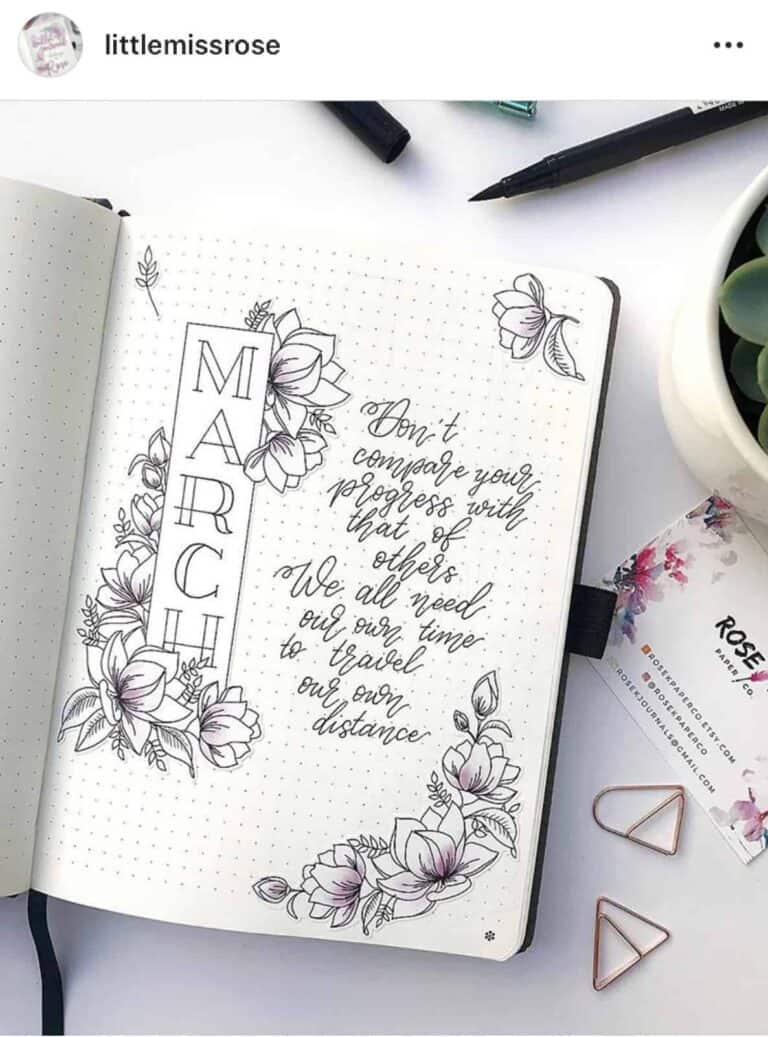 littlemissrose
MADE
MARCH
Don't
compare your
progress with
that of
others
We all need
our own time
to travel
our own
distance
ROSE
PAPER CO.
ROSEKPAPERCO.ETSY.COM
@ROSEKPAPERCO
ROSEKJOURNALS@GMAIL.COM